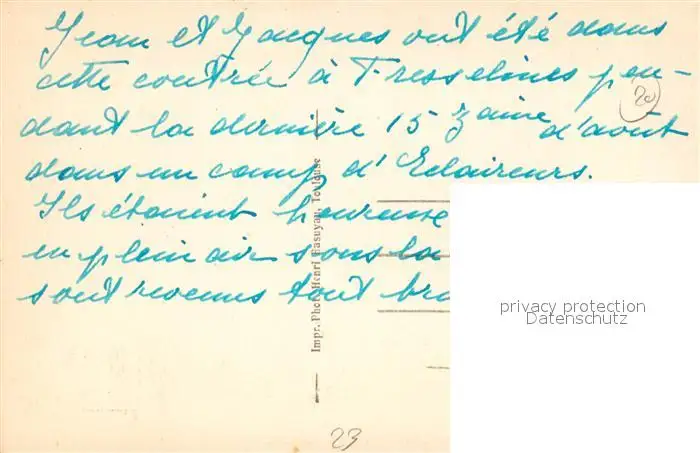 Jean et Jacques ont été dans
cette contrée à Fresselines pen-
dant la dernière 15zaine d'août
dans un camp d'Eclaireurs.
Ils étaient heureuse
en plein air sous la
sont revenus tout bro
20
Impr. Photo Henri Basuyau, Toulouse
privacy protection
Datenschutz
23